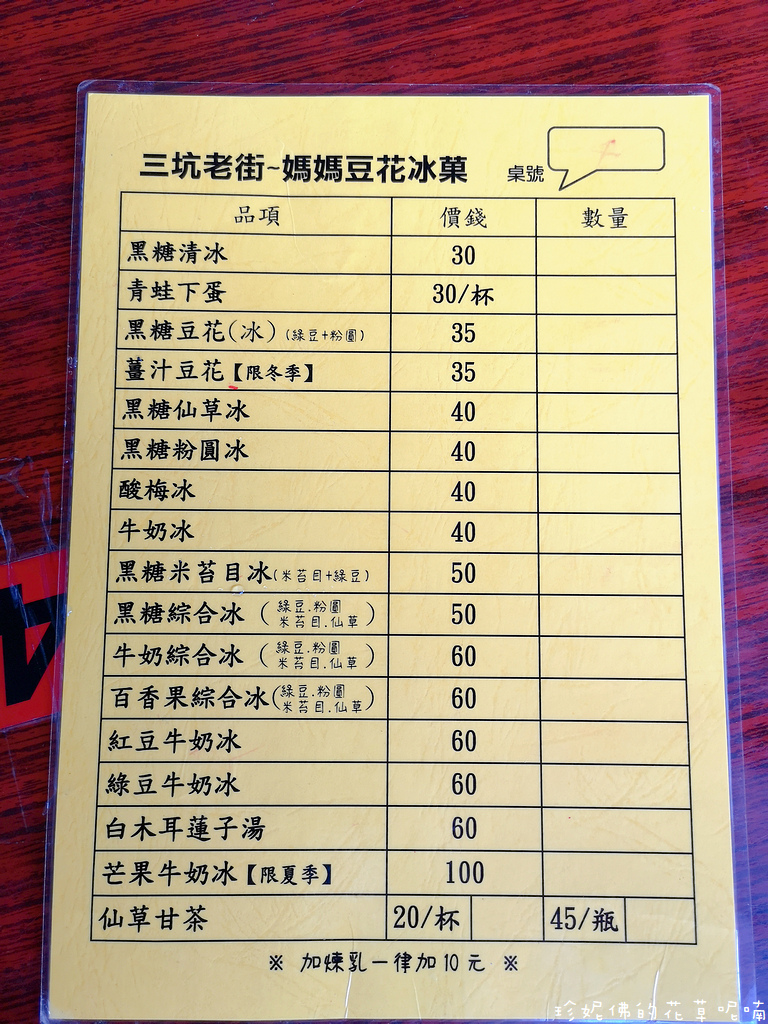 三坑老街~媽媽豆花冰菓 桌號
品項 價錢 數量
黑糖清冰 30
青蛙下蛋 30/杯
黑糖豆花(冰)(綠豆+粉圓) 35
薑汁豆花【限冬季】 35
黑糖仙草冰 40
黑糖粉圓冰 40
酸梅冰 40
牛奶冰 40
黑糖米苔目冰(米苔目+綠豆) 50
黑糖綜合冰(綠豆.粉圓 米苔目.仙草) 50
牛奶綜合冰(綠豆.粉圓 米苔目.仙草) 60
百香果綜合冰(綠豆.粉圓 米苔目.仙草) 60
紅豆牛奶冰 60
綠豆牛奶冰 60
白木耳蓮子湯 60
芒果牛奶冰【限夏季】 100
仙草甘茶 20/杯 45/瓶
※ 加煉乳一律加10元 ※
珍妮佛的花草呢喃